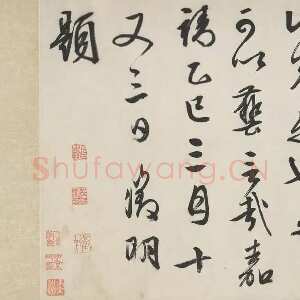 可以藝言哉嘉
靖乙巳三月十
又三日徵明
題
Shufawang.CN